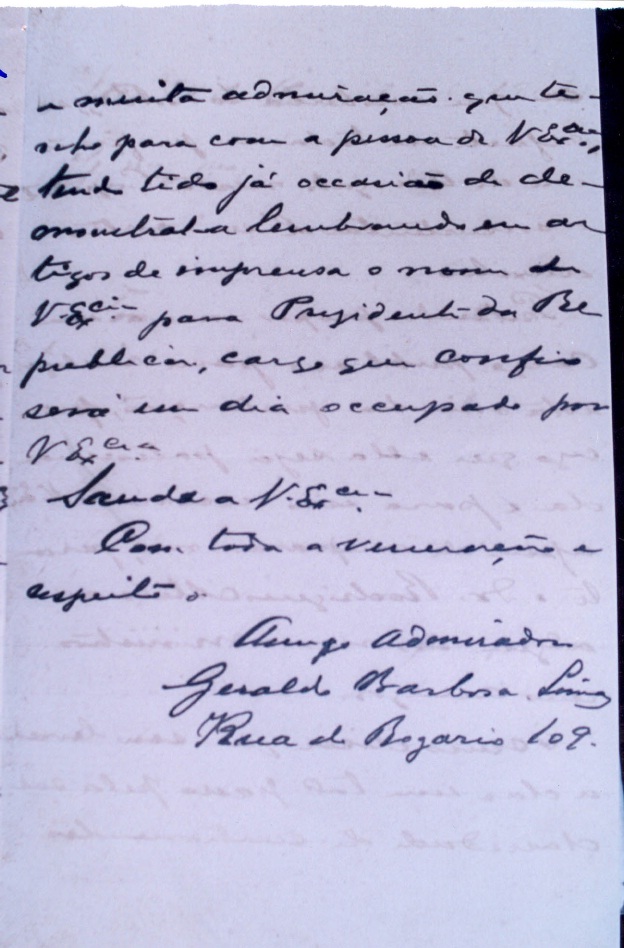 a muita admiração que te-
nho para com a pessoa de V. Ex.cia,
tendo tido já occasião de de-
monstral-a lembrando em ar
tigos de imprensa o nome de
V. Ex.cia para Presidente da Re
publica, cargo que confio
será um dia occupado por
V. Ex.cia.
Saúda a V. Ex.cia
Com toda a veneração e
respeito.
Amigo admirador
Geraldo Barbosa Lima
Rua do Rozario 109.